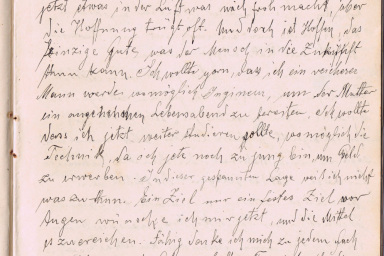 jetzt etwas in der Luft was mich froh macht, aber
die Hoffnung trügt oft. Und doch ist Hoffen, das
Einzige Gute, was der Mensch in die Zukunft
kann. Ich wollte gern, daß ich ein reicher
Mann werde womöglich um der Mutter
ein angenehmen Lebensabend zu bereiten. Ich wollte
dass ich jetzt weiter studieren sollte, womöglich die
Technik, da ich jetz noch zu jung bin, um Geld
zu erwerben. In dieser gespannten Lage weis ich nicht
was zu thun. Ein Ziel nur ein festes Ziel vor
Augen wünsche ich mir jetzt, und die Mittel
es zu erreichen. Fähig denke ich mich zu jedem Fach